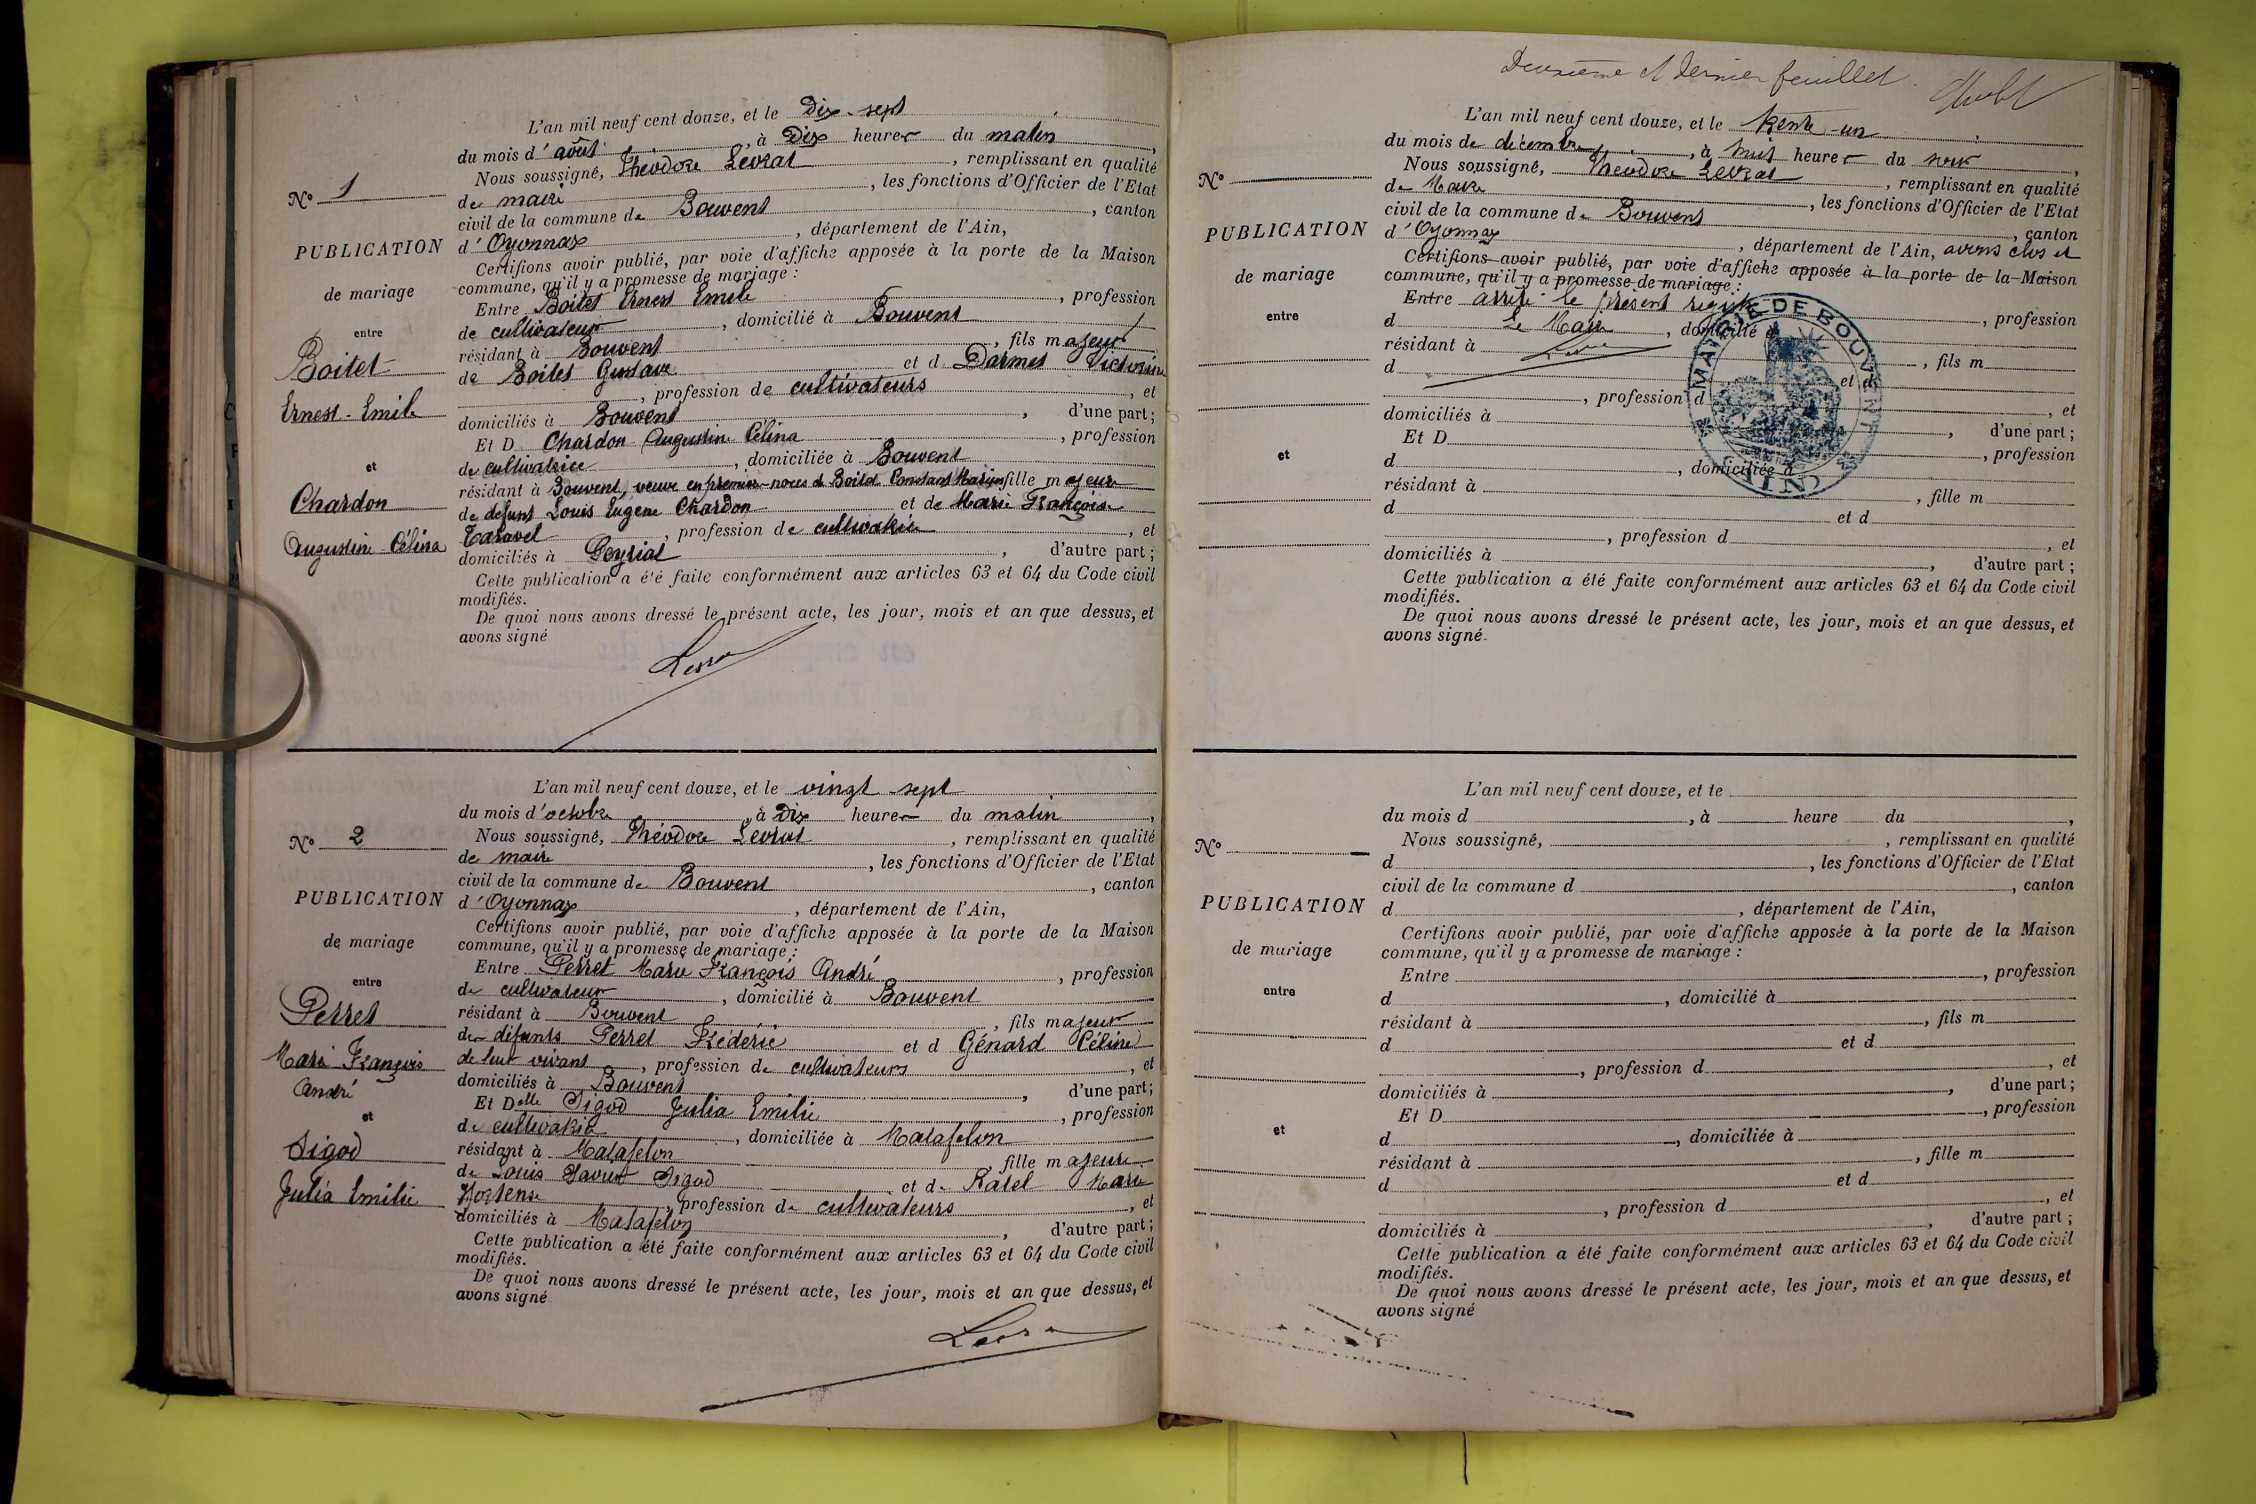 L'an mil neuf cent douze, et le Dix-sept
du mois d'août, à Dix heures du matin,
Nous soussigné, Théodore Levrat, remplissant en qualité
de maire, les fonctions d'Officier de l'Etat
civil de la commune de Bouvent, canton
d'Oyonnax, département de l'Ain,
Certifions avoir publié, par voie d'affiche apposée à la porte de la Maison
commune, qu'il y a promesse de mariage :
Entre Boitet Ernest Emile, profession
de cultivateur, domicilié à Bouvent
résidant à Bouvent, fils majeur
de Boitet Gustave et d Darmet Victorine
, profession de cultivateurs, et
domiciliés à Bouvent, d'une part ;
Et D Chardon Augustine Célina, profession
de cultivatrice, domiciliée à Bouvent
résidant à Bouvent, veuve en premier-noces de Boitet Constant Marius fille majeure
de défunt Louis Eugène Chardon et de Marie Françoise
Taravel, profession de cultivatrice, et
domiciliés à Geyriat, d'autre part ;
Cette publication a été faite conformément aux articles 63 et 64 du Code civil
modifiés.
De quoi nous avons dressé le présent acte, les jour, mois et an que dessus, et
avons signé
N° 1
PUBLICATION
de mariage
entre
Boitet
Ernest-Emile
et
Chardon
Augustine-Célina
L'an mil neuf cent douze, et le vingt sept
du mois d'octobre, à Dix heures du matin,
Nous soussigné, Théodore Levrat, remplissant en qualité
de maire, les fonctions d'Officier de l'Etat
civil de la commune de Bouvent, canton
d'Oyonnax, département de l'Ain,
Certifions avoir publié, par voie d'affiche apposée à la porte de la Maison
commune, qu'il y a promesse de mariage :
Entre Perret Marie François André, profession
de cultivateur, domicilié à Bouvent
résidant à Bouvent, fils majeur
de défunts Perret Frédéric et d Génard Céline
de leur vivant, profession de cultivateurs, et
domiciliés à Bouvent, d'une part ;
Et Delle Sigod Julia Emilie, profession
de cultivatrice, domiciliée à Matafelon
résidant à Matafelon fille majeure
de Louis Xavier Sigod et de Ratel Marie
Hortense, profession de cultivateurs, et
domiciliés à Matafelon, d'autre part ;
Cette publication a été faite conformément aux articles 63 et 64 du Code civil
modifiés.
De quoi nous avons dressé le présent acte, les jour, mois et an que dessus, et
avons signé
N° 2
PUBLICATION
de mariage
entre
Perret
Marie François
André
et
Sigod
Julia Emilie
Deuxième et dernier feuillet.
L'an mil neuf cent douze, et le trente-un
du mois de décembre, à huit heures du soir,
Nous soussigné, Théodore Levrat, remplissant en qualité
de Maire, les fonctions d'Officier de l'Etat
civil de la commune de Bouvent, canton
d'Oyonnax, département de l'Ain, avons clos et
Certifions avoir publié, par voie d'affiche apposée à la porte de la Maison
commune, qu'il y a promesse de mariage :
Entre arrêté le présent registre, profession
d Le Maire, domicilié à
résidant à, fils m
d et d
, profession d, et
domiciliés à, d'une part ;
Et D, profession
d, domiciliée à
résidant à, fille m
d et d
, profession d, et
domiciliés à, d'autre part ;
Cette publication a été faite conformément aux articles 63 et 64 du Code civil
modifiés.
De quoi nous avons dressé le présent acte, les jour, mois et an que dessus, et
avons signé
MAIRIE DE BOUVENT
(AIN)
N°
PUBLICATION
de mariage
entre
et
L'an mil neuf cent douze, et le
du mois d, à heure du,
Nous soussigné,, remplissant en qualité
d, les fonctions d'Officier de l'Etat
civil de la commune d, canton
d, département de l'Ain,
Certifions avoir publié, par voie d'affiche apposée à la porte de la Maison
commune, qu'il y a promesse de mariage :
Entre, profession
d, domicilié à
résidant à, fils m
d et d
, profession d, et
domiciliés à, d'une part ;
Et D, profession
d, domiciliée à
résidant à, fille m
d et d
, profession d, et
domiciliés à, d'autre part ;
Cette publication a été faite conformément aux articles 63 et 64 du Code civil
modifiés.
De quoi nous avons dressé le présent acte, les jour, mois et an que dessus, et
avons signé
N°
PUBLICATION
de mariage
entre
et